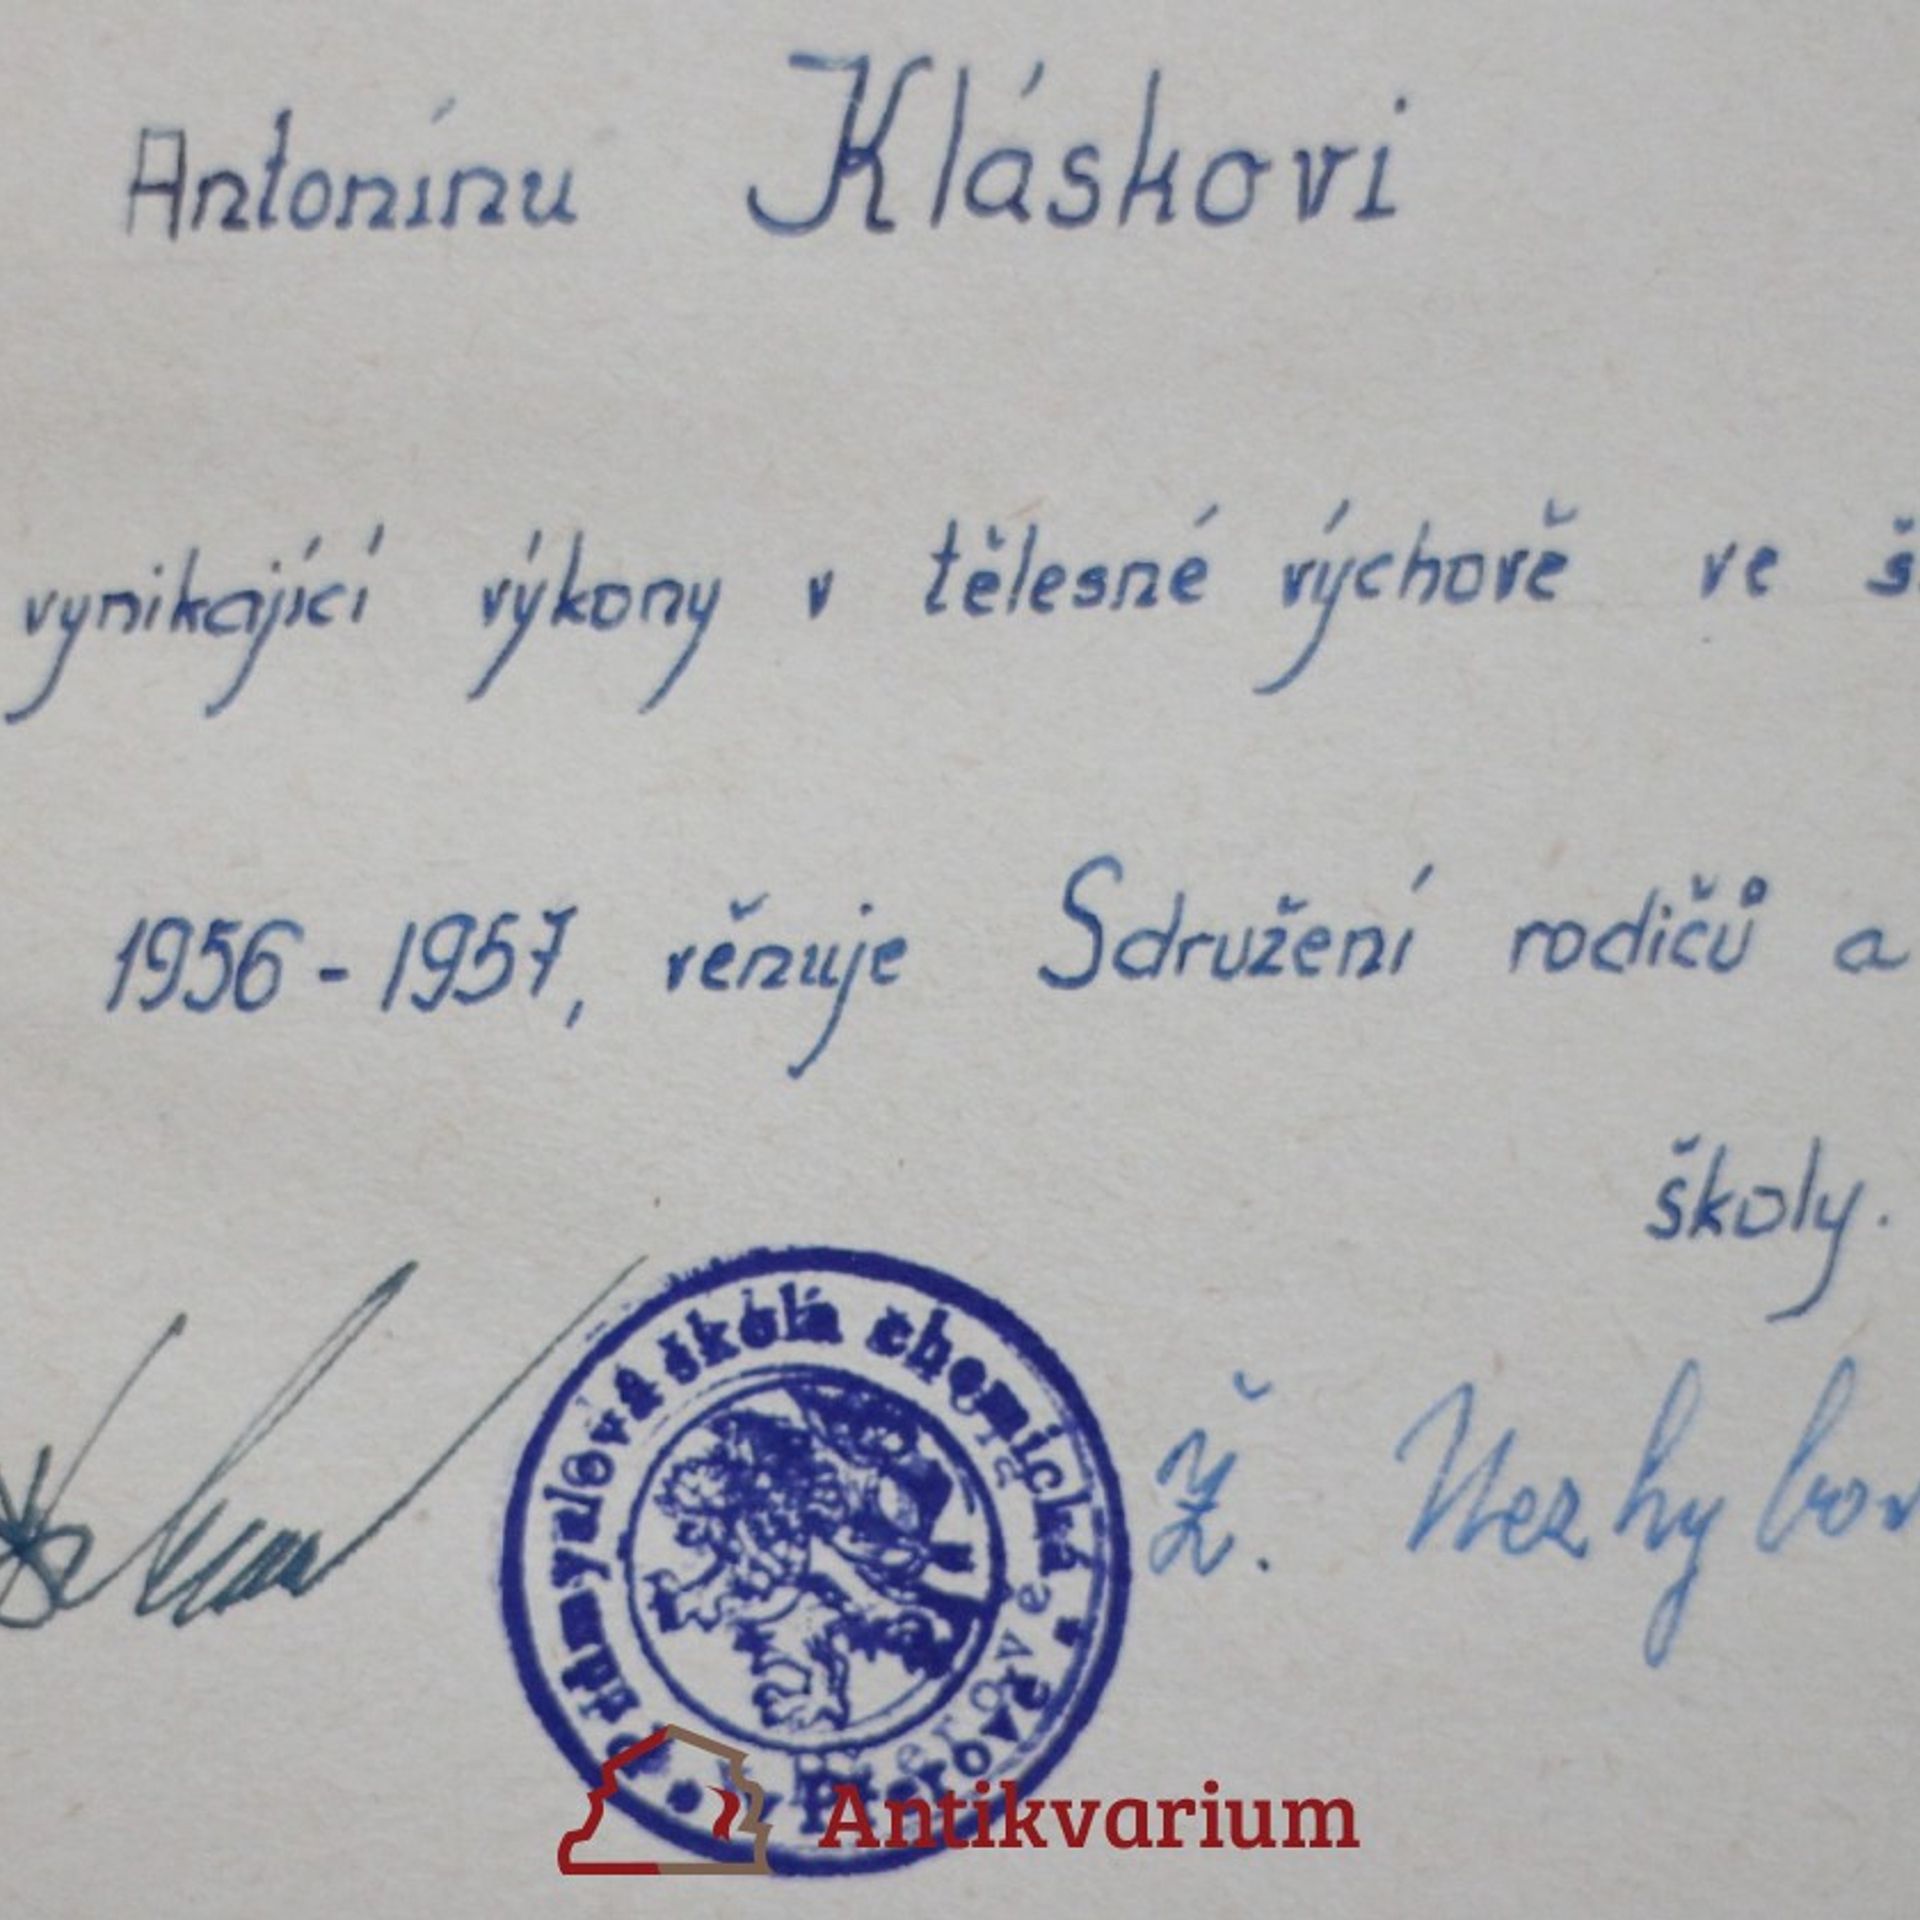 Antonínu Kláskovi
vynikající výkony v tělesné výchově ve š
1956-1957, věnuje Sdružení rodičů a
školy.
Průmyslová škola chemická v Přerově
Ž. Nezhybov
Antikvarium